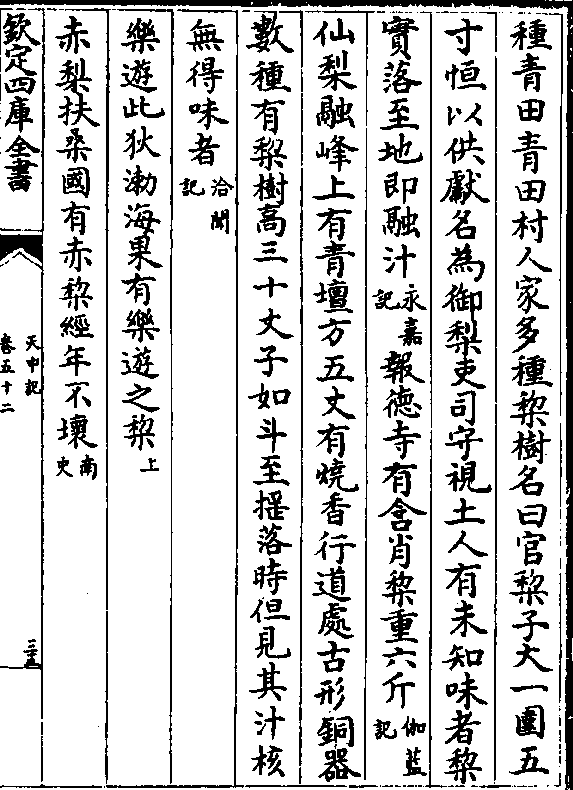 種青田青田村人家多種棃樹名曰官棃子大一圍五
寸恒以供獻名為御梨吏司守視土人有未知味者棃
實落至地即融汁永嘉記報徳寺有含肖棃重六斤伽藍記
仙梨融峰上有青壇方五丈有燒香行道處古形銅器
數種有棃樹高三十丈子如斗至揺落時但見其汁核
無得味者洽聞記
樂遊此狄渤海果有樂遊之棃上
赤梨扶桑國有赤棃經年不壞南史
欽定四庫全書
天中記
卷五十二
三五